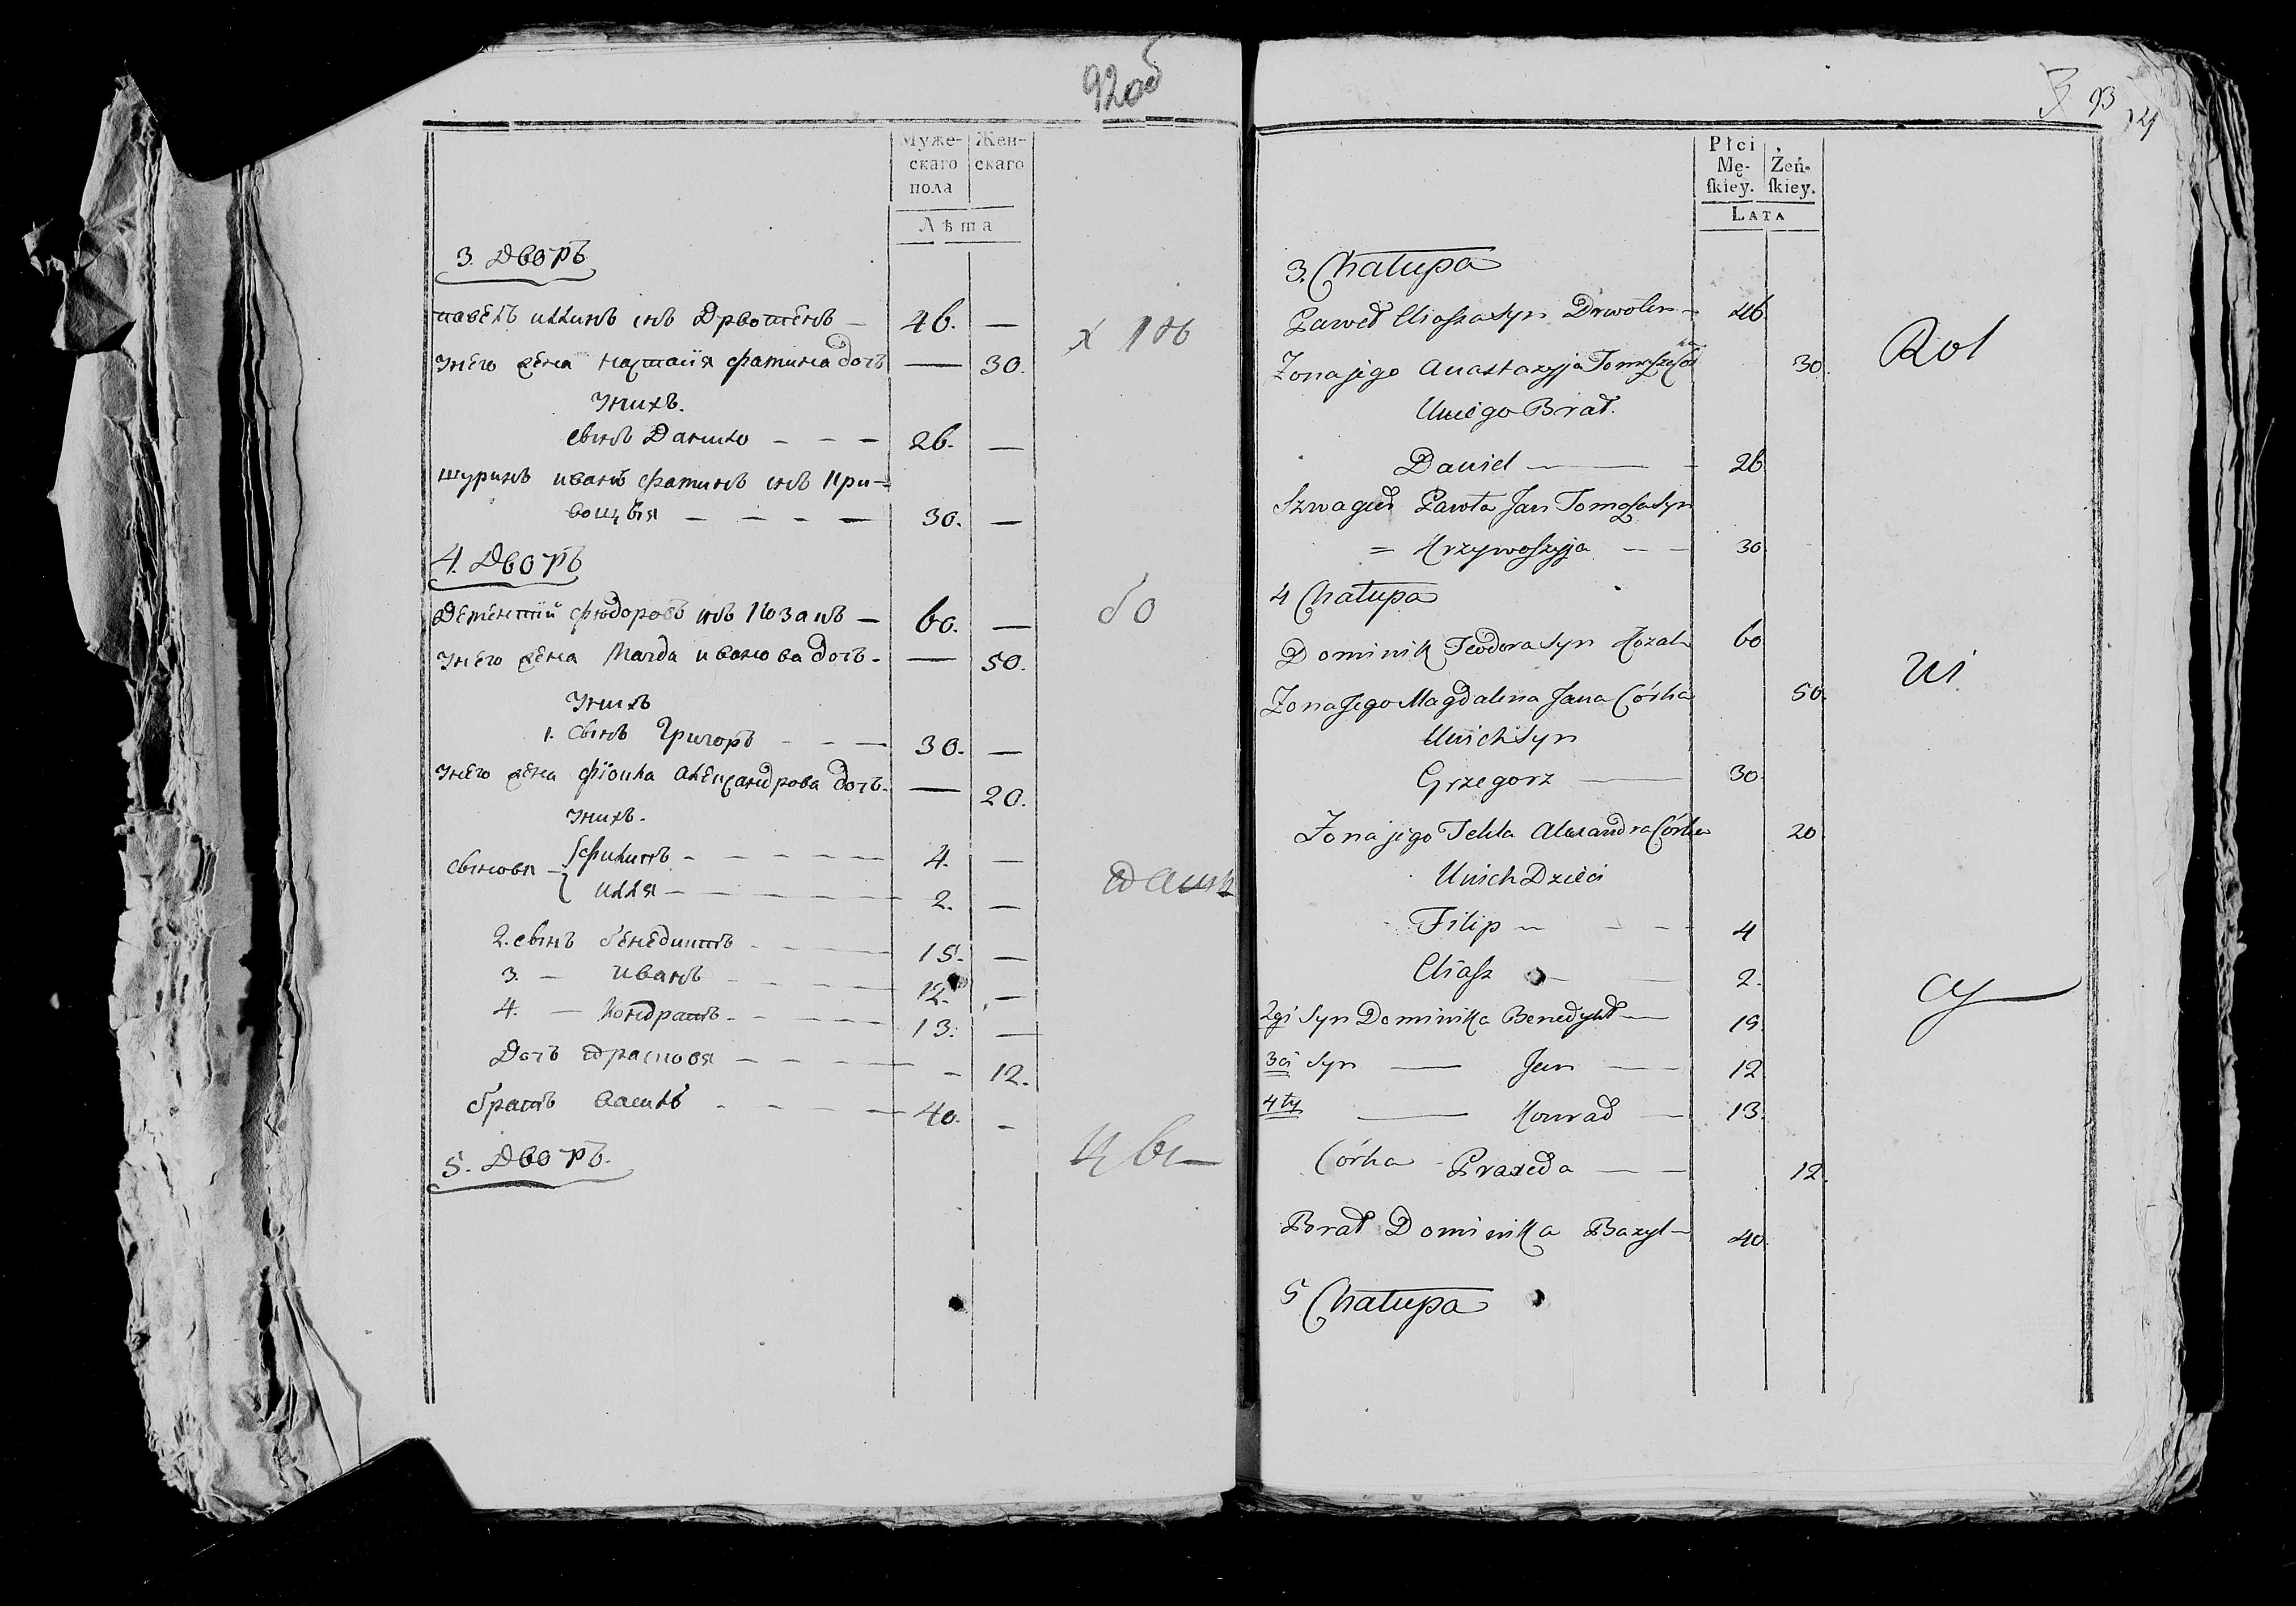 92об
Муже-
скаго
пола
Жен-
скаго
Лѣта
3. Дворъ
павелъ иллинъ снъ Дрволенъ — 46. —
Унего жена настасія фамина дочъ — 30.
Унихъ.
сынъ Данило - - — 26. —
шуринъ иванъ фаминъ снъ Кри-
вошѣя — - - — 30. —
4. Дворъ
Дементій фюдоровъ снъ Козакъ — 60. —
Унего жена Магда иванова дочъ - — 50.
Унихъ
1. сынъ Григоръ - - — 30. —
Унего жена фіокла александрова дочъ - — 20.
Унихъ.
сыновя — филипъ - - - - - 4. —
илля - - - - - 2. —
2. сынъ бенедиктъ - - - - 15. —
3. — иванъ - - - - 12. —
4. — Кондратъ - - - - 13. —
Дочъ - - - - 12.
братъ василь - - - — 40. -
5. Дворъ.
3 93
Płci
Mę-
ſkiey.
Żeń-
ſkiey.
LATA
3. Chałupa
Paweł Eliaſza Syn Drwolen - 46
Zona jego Anastazyja Tomaſza Cór 30.
U niego Brat.
Daniel — 26
Szwagier Pawła Jan Tomaſza Syn
= Krzywoſzyja — — 30
4 Chałupa
Dominik Teodora Syn Kozak 60
Zona Jego Magdalena Jana Córka 50.
U nich Syn
Grzegorz — 30.
Zona jego Tekla Alexandra Córka 20
U nich Dzieci
Filip - - - 4
Eliaſz — 2.
2gi Syn Dominika Benedykt — 15
3ci Syn — Jan — 12
4ty — Konrad — 13.
Córka Praxeda — — 12.
Brat Dominika Bazyl — 40
5 Chałupa